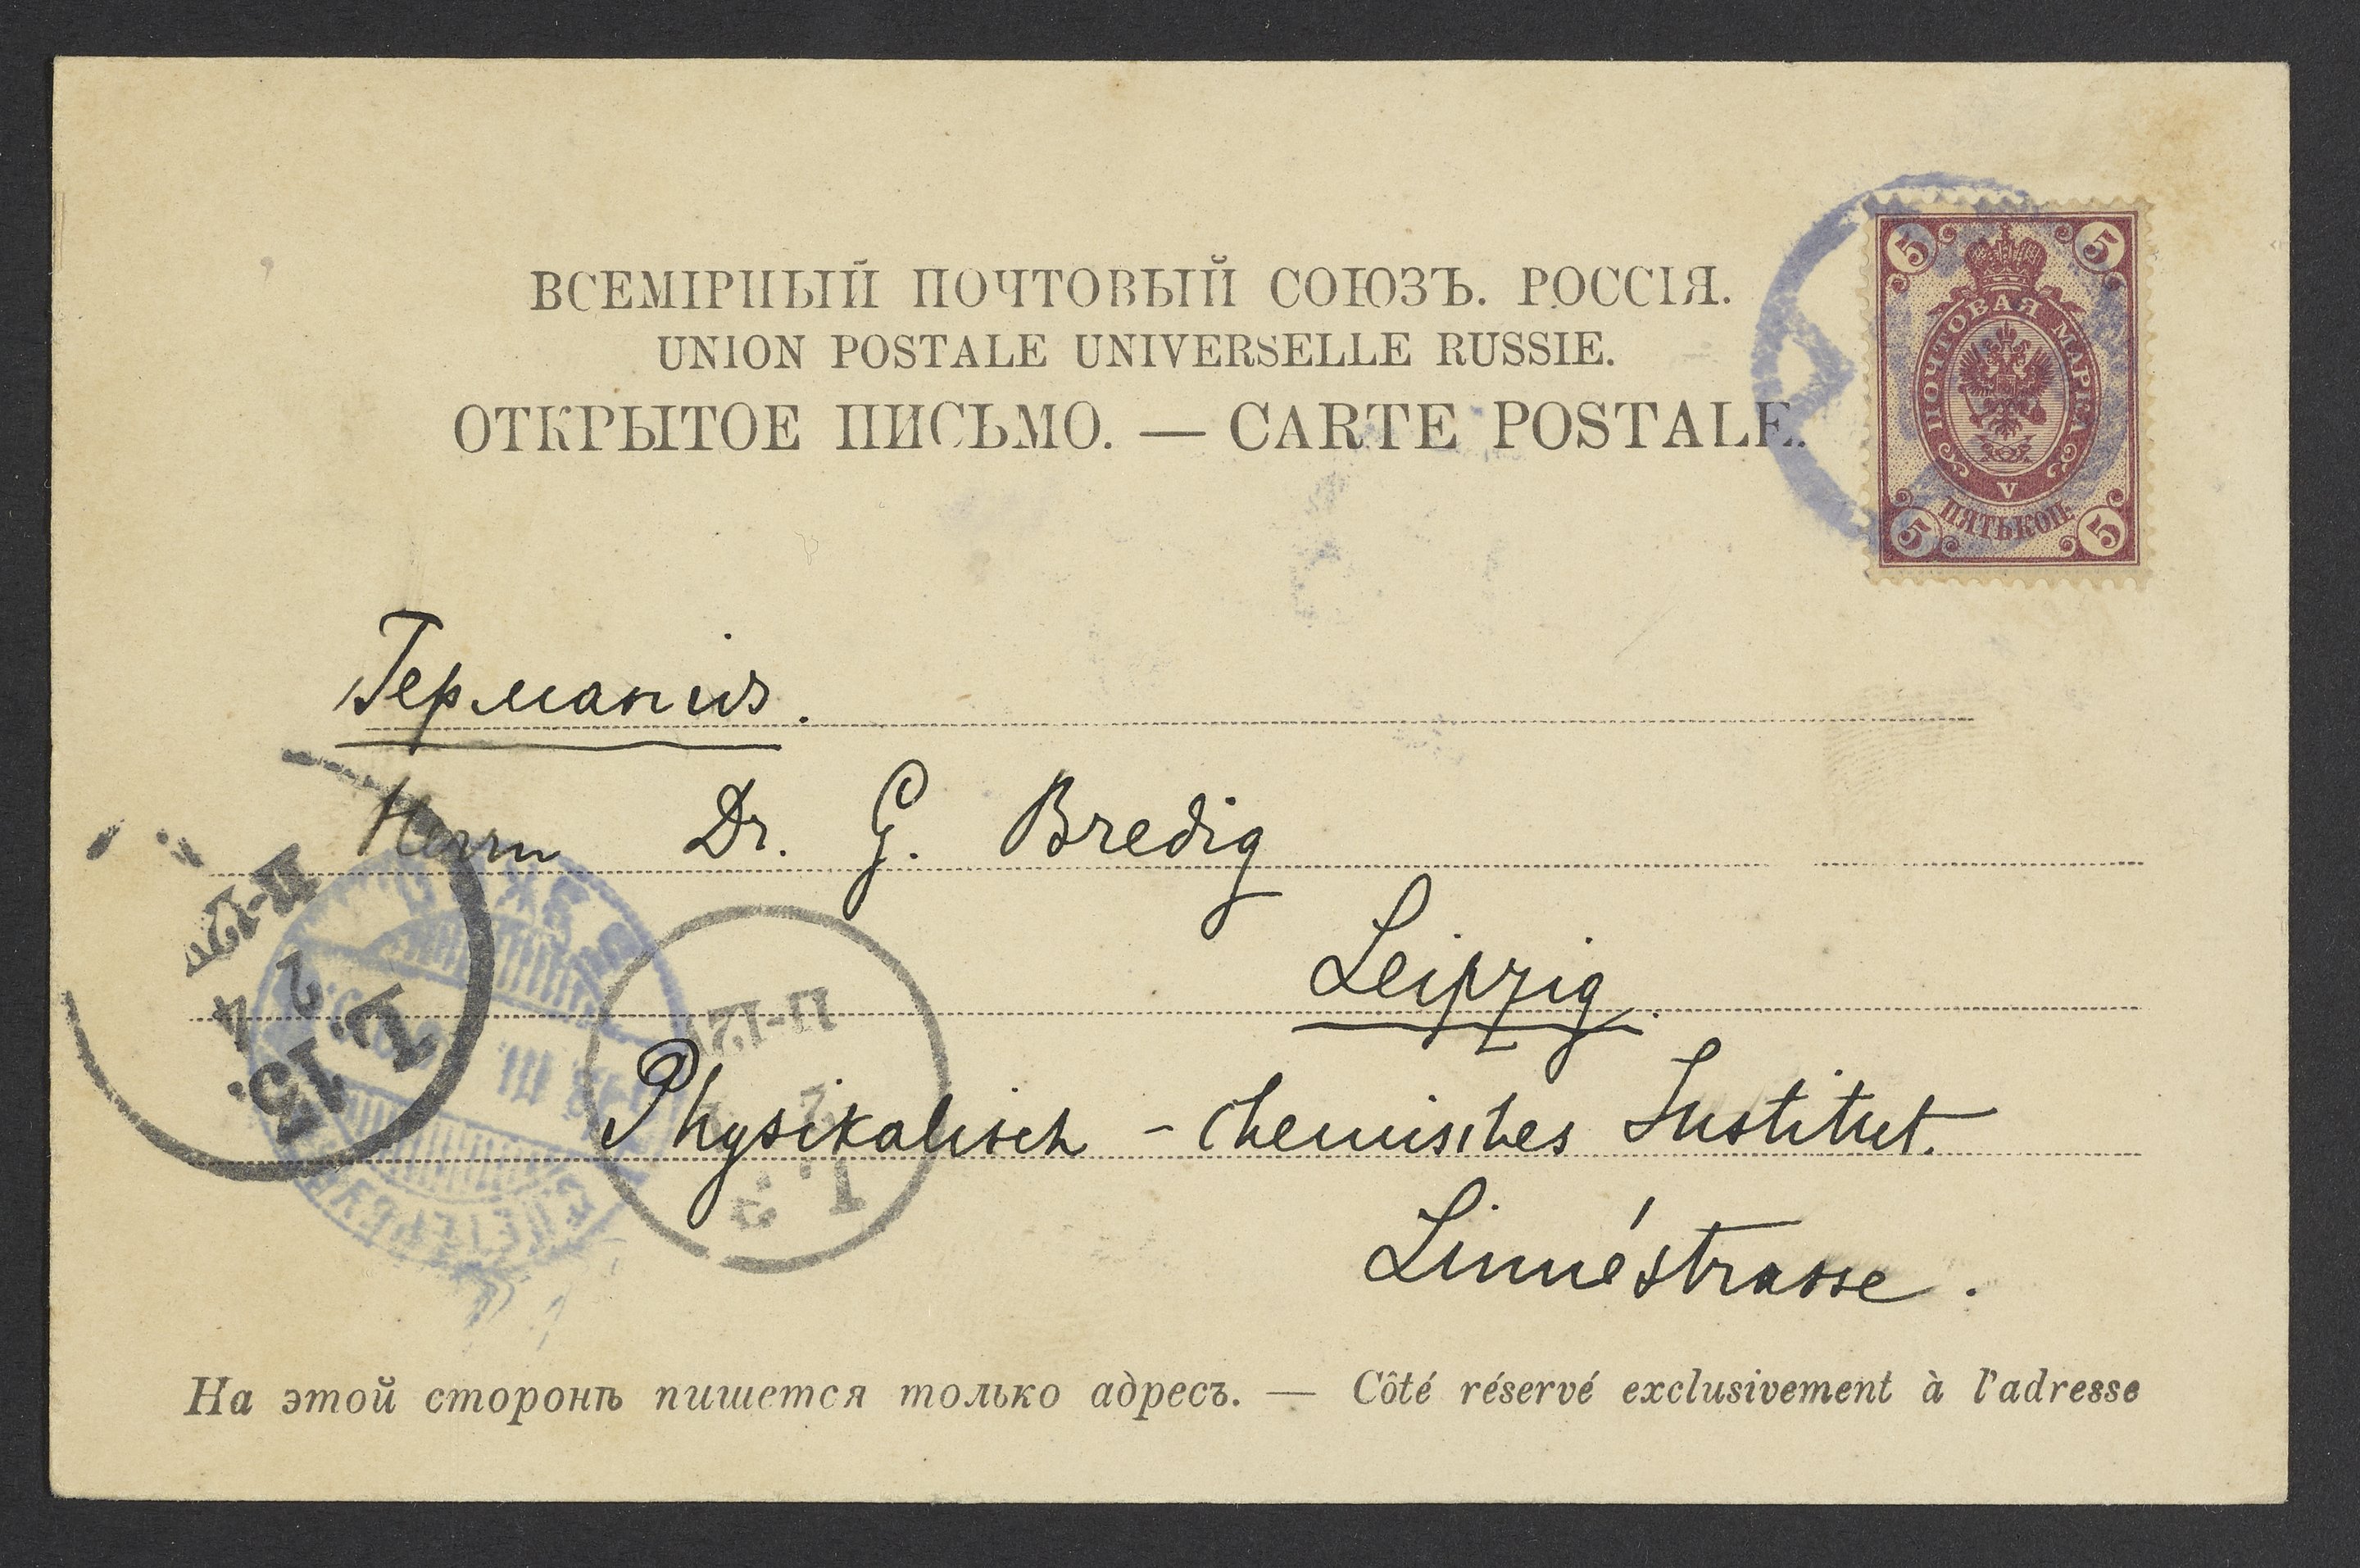 ВСЕМІРНЫЙ ПОЧТОВЫЙ СОЮЗЪ. РОССІЯ.
UNION POSTALE UNIVERSELLE RUSSIE.
ОТКРЫТОЕ ПИСЬМО. — CARTE POSTALE.
5 5
ПОЧТОВАЯ МАРКА
V
ПЯТЬ КОП.
5 5
Германія.
Herrn Dr. G. Bredig
Leipzig.
Physikalisch - chemisches Institut.
Linnéstrasse.
11-12
2 4
1. 15.
11-12
С ПЕТЕРБУРГ
На этой сторонѣ пишется только адресъ. — Côté réservé exclusivement à l'adresse